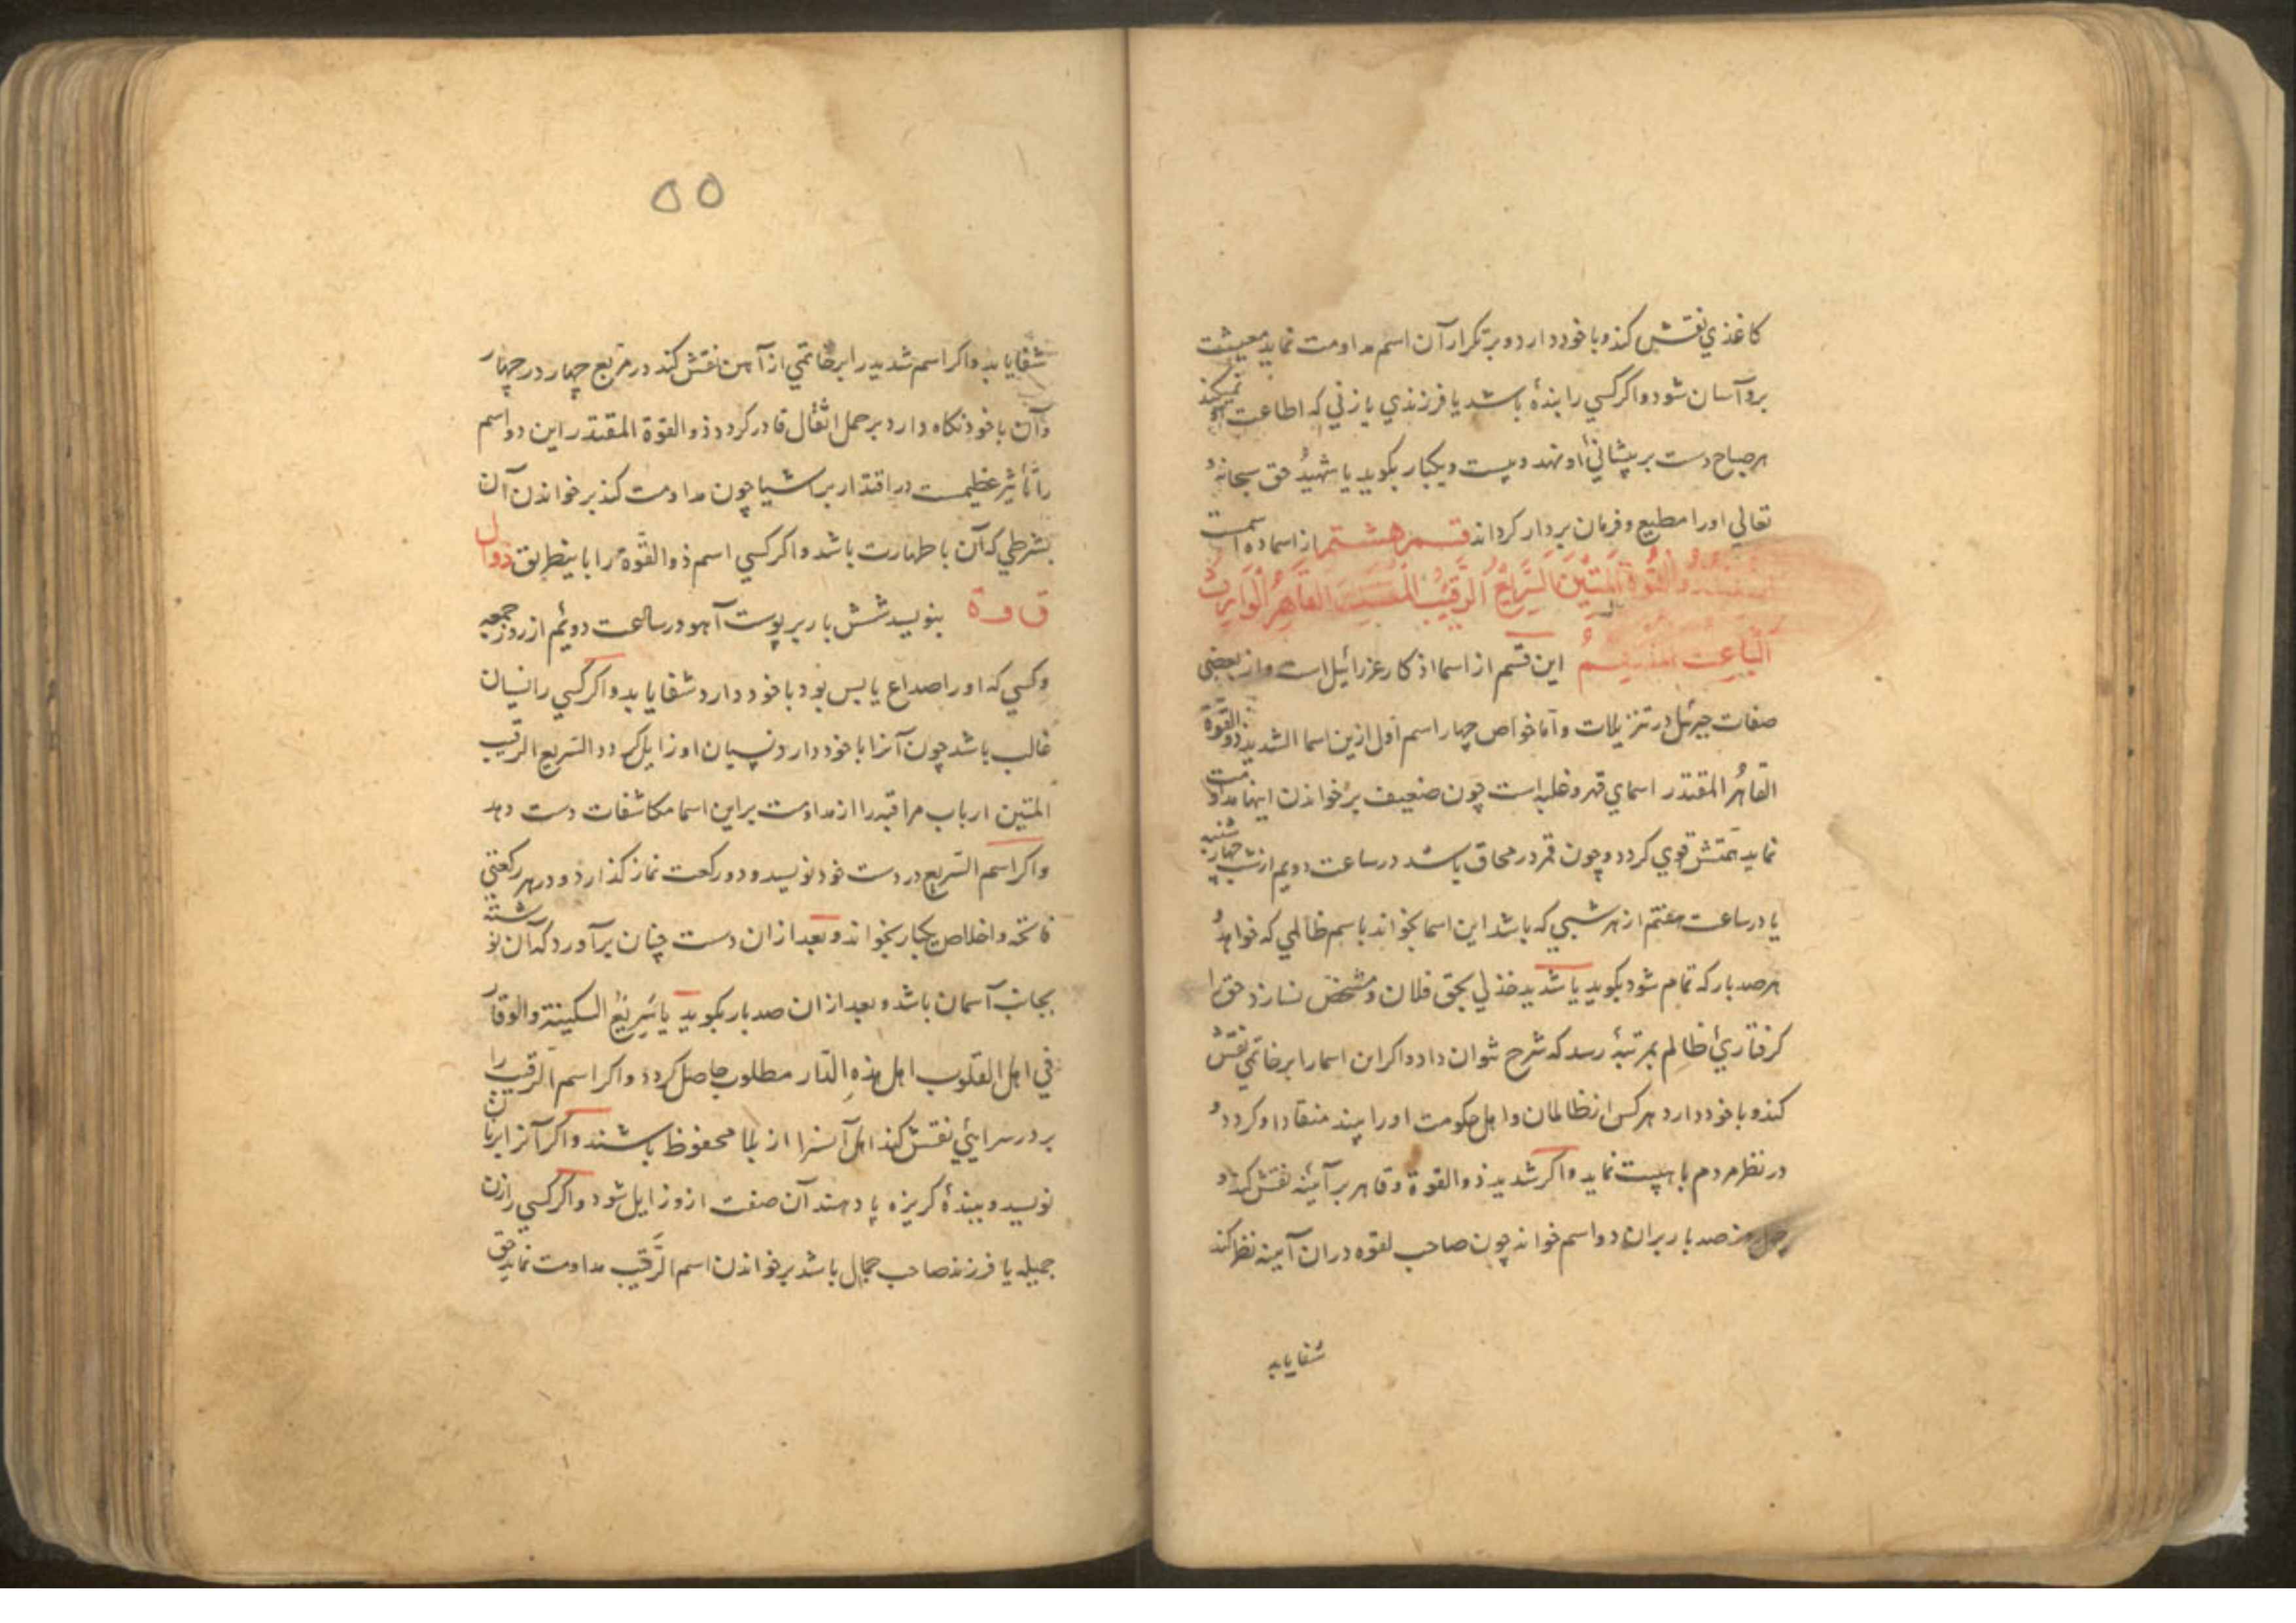 کاغذي نقش کند و با خود دارد و بر تکرار آن اسم مداومت نماید معیشت
برو آسان شود و اکر کسي را بندۀ باشد یا فرزندي یا زني که اطاعت او نمیکند
هر صباح دست بر پیشانئ او نهد و بیست و یکبار بکوید یا شهیدُ حق سبحانه و
تعالي او را مطیع و فرمان بردار کرداند قسم هشتم از اسما ده اسمست
ذو القوة المتین السریع الرقیب المقتدر القاهر الوارث
الباعث المنتقم این قسم از اسما اذکار عزرائیل است و از بعضی
صفات جبرئیل در تنزیلات و اما خواص چهار اسم اول ازین اسما الشدید ذو القوة
القاهرُ المقتدر اسماي قهر و غلبه است چون ضعیف بر خواندن اینها مداومت
نماید همتش قوي کردد و چون قمر در محاق باشد در ساعت دویم از شب چهارشنبه
یا در ساعت هفتم از هر شبي که باشد این اسما بخواند باسم ظالمي که خواهد و
هر صد بار که تمام شود بکوید یا شدید خذ لي بحق فلان و مشخص نسازد حق را
کرفتارئ ظالم بمرتبۀ رسد که شرح نتوان داد و اکر این اسما را بر خاتمي نقش
کند و با خود دارد هر کس از ظالمان و اهل حکومت او را بیند منقاد او کردد و
در نظر مردم با هیبت نماید و اکر شدید ذو القوة و قاهر بر آئینه نقش کند و
چهل و نه صد بار بران دو اسم خواند چون صاحب لقوه در ان آیینه نظر کند
شفا یابد
۵۵
شفا یابد و اکر اسم شدید را بر خاتمي از آهن نقش کند در مربع چهار در چهار
و آن با خود نکاه دارد بر حمل اثقال قادر کردد ذو القوة المقتدر این دو اسم
را تأثیر عظیمست در اقتدار بر اشیا چون مداومت کند بر خواندن آن
بشرطي که آن با طهارت باشد و اکر کسي اسم ذو القوة را باینطریق ذوال
ق و ة بنویسد شش بار بر پوست آهو در ساعت دوئم از روز جمعه
و کسي که او را صداع یابس بود با خود دارد شفا یابد و اکر کسي را نسیان
غالب باشد چون آنرا با خود دارد نسیان او زایل کردد السریع الرقیب
المتین ارباب مراقبه را از مداومت بر این اسما مکاشفات دست دهد
و اکر اسم السریع در دست خود نویسد و دو رکعت نماز کذارد و در هر رکعتي
فاتحه و اخلاص یکبار بخواند و بعد از ان دست چنان برآورد که آن نوشته
بجانب آسمان باشد و بعد از ان صد بار بکوید یا سَرِیعُ السکینة و الوقار
في اهل القلوب اهل هذه الدار مطلوب حاصل کردد و اکر اسم الرقیب را
بر در سرایئي نقش کند اهل آنسرا از بلا محفوظ باشند و اکر آنرا بر نان
نویسد و ببندۀ کریزه پا دهند آن صفت ازو زایل شود و اکر کسي را زن
جمیله یا فرزند صاحب جمال باشد بر خواندن اسم الرَّقیب مداومت نماید حق